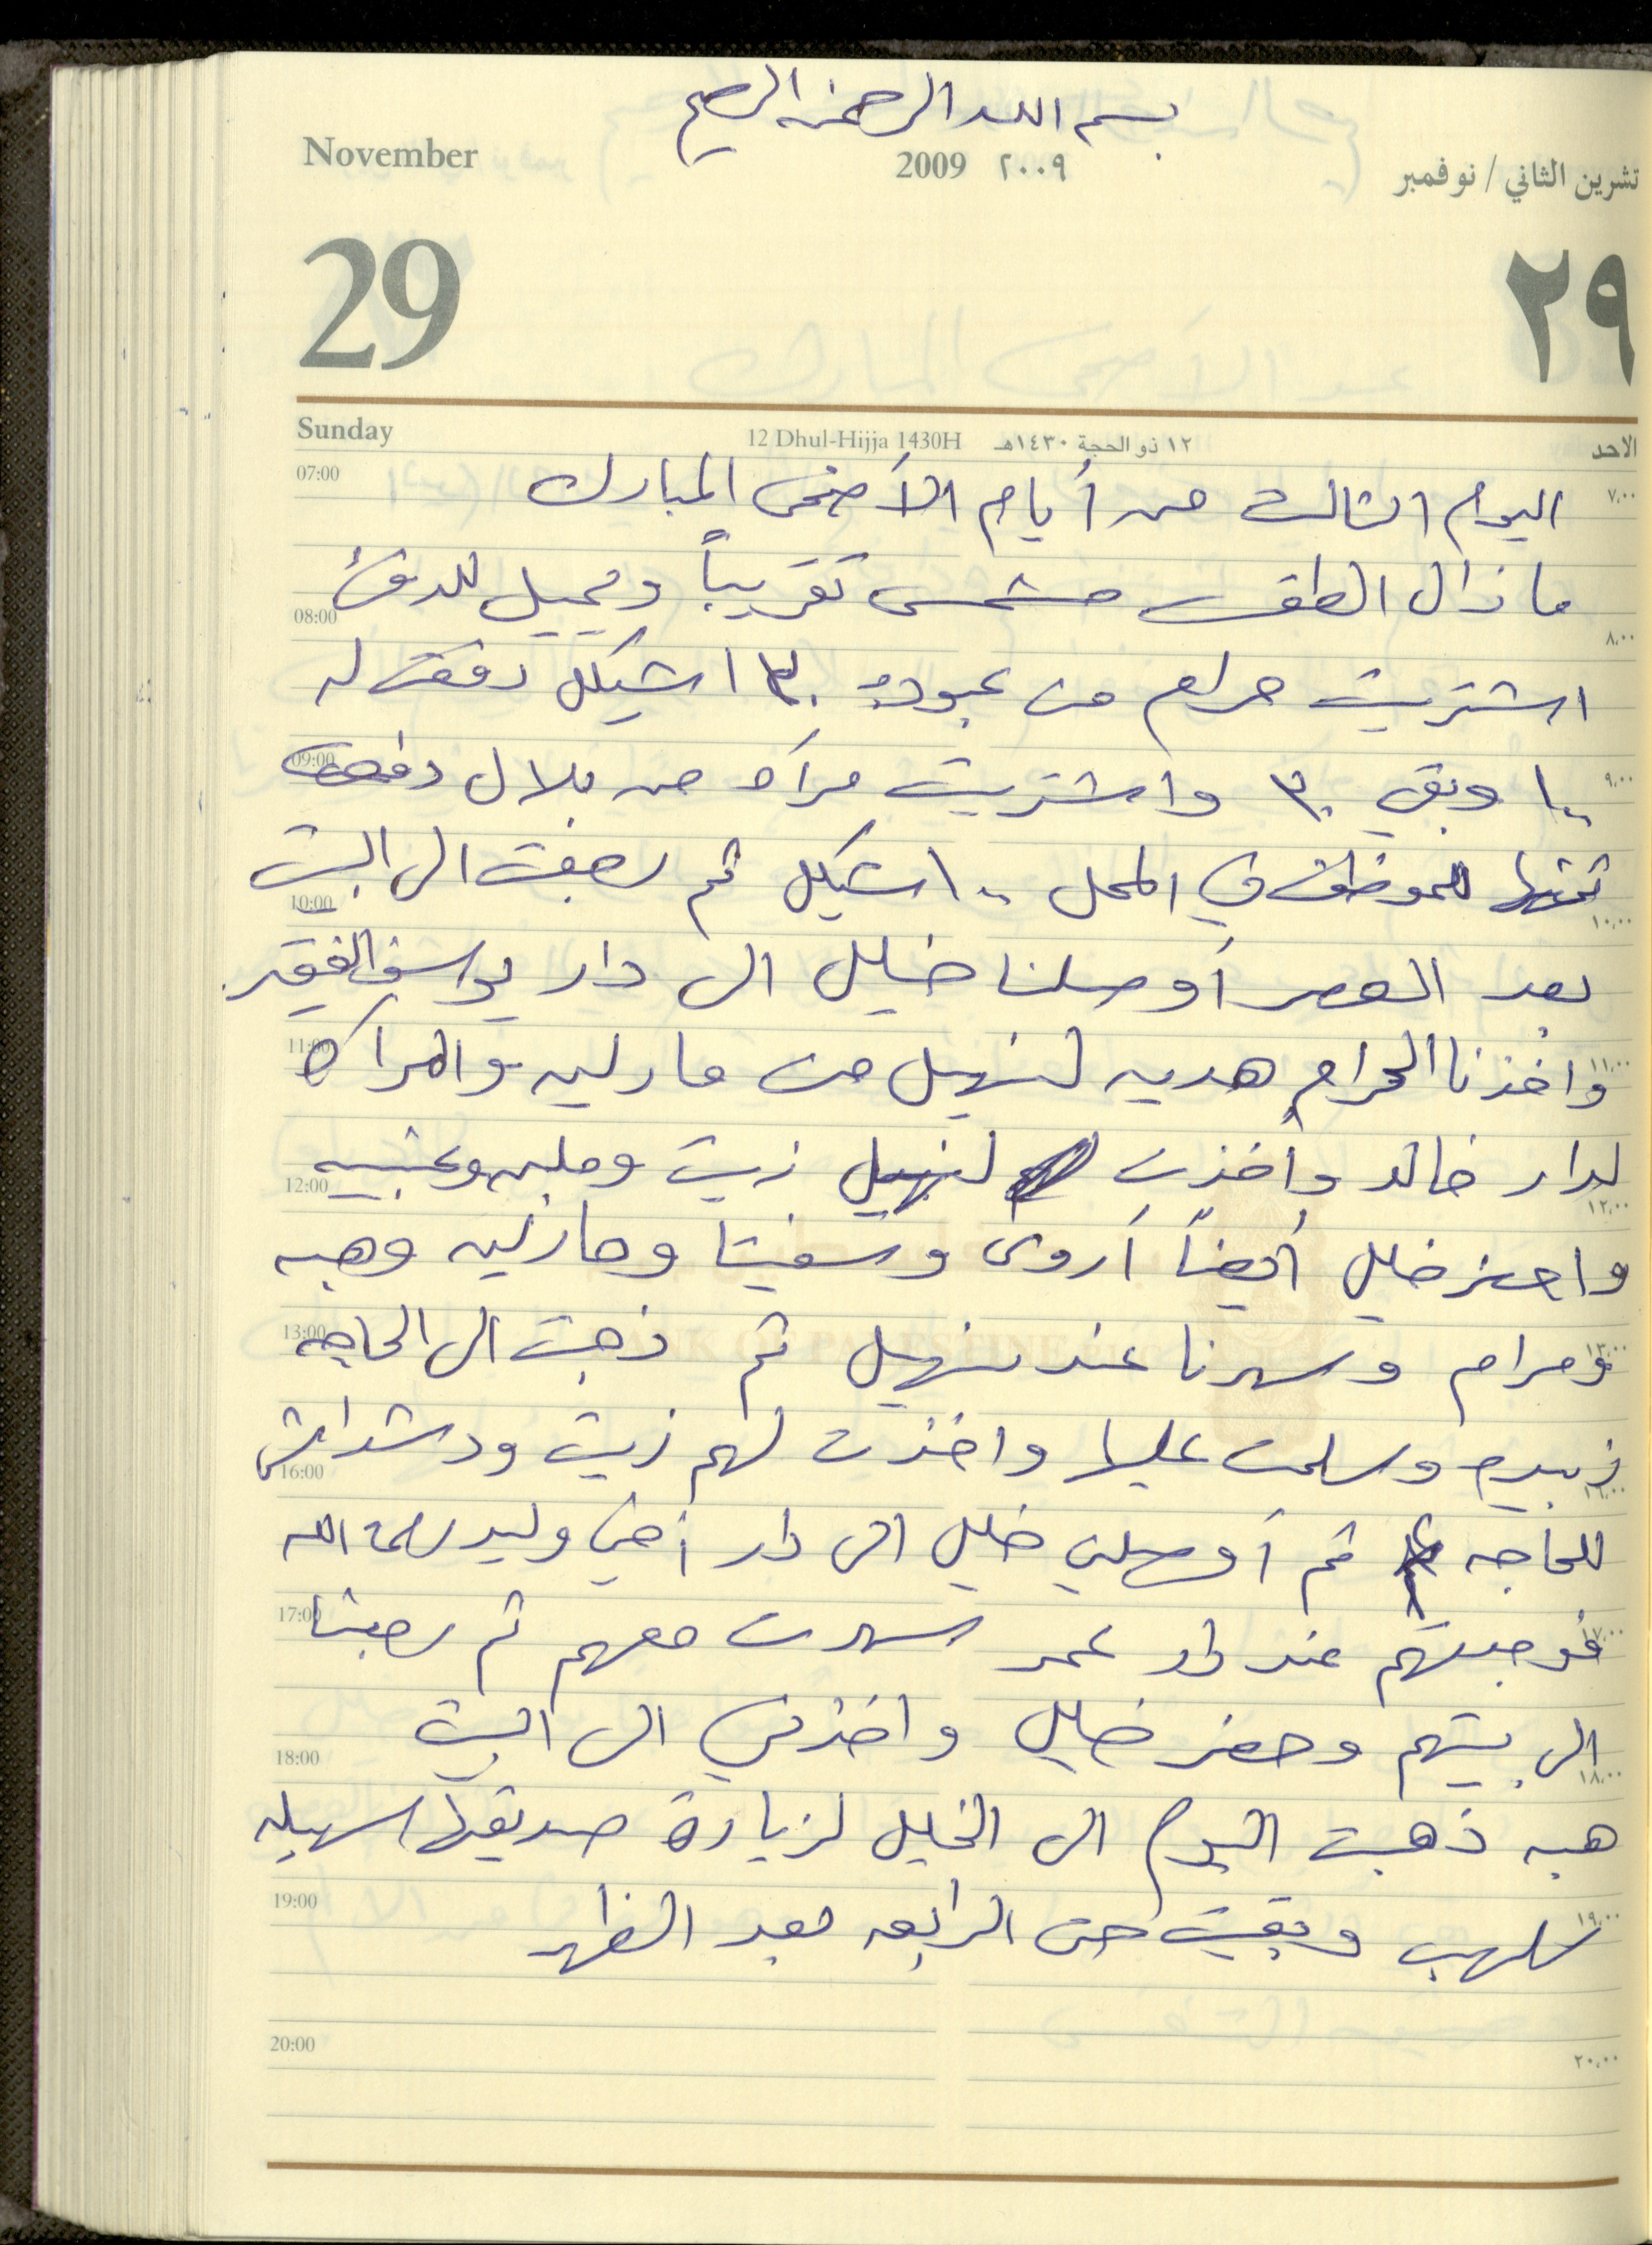 بسم الله الرحمن الرحيم
November 2009 ٢٠٠٩ تشرين الثاني / نوفمبر
29 ٢٩
Sunday 12 Dhul-Hijja 1430H ١٢ ذو الحجة ١٤٣٠هـ الاحد
07:00 ٧،٠٠
اليوم الثالث من أيام الأضحى المبارك
ما زال الطقس مشمس تقريباً ويميل للدفئ
08:00 ٨،٠٠
اشتريت حرام من عبوده شيكل دفعت له
09:00 ٩،٠٠
وبقي ٣٠ واشتريت مرآه من بلال دفعت
ثمنها للموظف في المحل شيكل ثم رجعت الى البيت
10:00 ١٠،٠٠
بعد العصر أوصلنا خليل الى دار الفقير
11:00 ١١،٠٠
واخذنا الحرام هديه لنهيل من مارلين والمراه
لدار خالد وأخذت لنهيل زيت وملبن وعنبيه
12:00 ١٢،٠٠
واحضر خليل أيضاً أروى وسفيتا ومارلين وهبه
BANK OF PALESTINE
13:00 ١٣،٠٠
ومرام وسهرنا عند نهيل ثم ذهبت الى الحاجه
زبيده وسلمت عليها واخذت لهم زيت
16:00 ١٦،٠٠
للحاجه ثم أوصلني خليل الى دار أخي وليد رحمه الله
17:00 ١٧،٠٠
فوجدتهم عند دار عمر سهرت معهم ثم رجعنا
الى بيتهم وحضر خليل واخذني الى البيت
18:00 ١٨،٠٠
هبه ذهبت اليوم الى الخليل لزيارة صديقتها سهيله
19:00 ١٩،٠٠
سلهب وبقيت حتى الرابعه بعد الظهر
20:00 ٢٠،٠٠